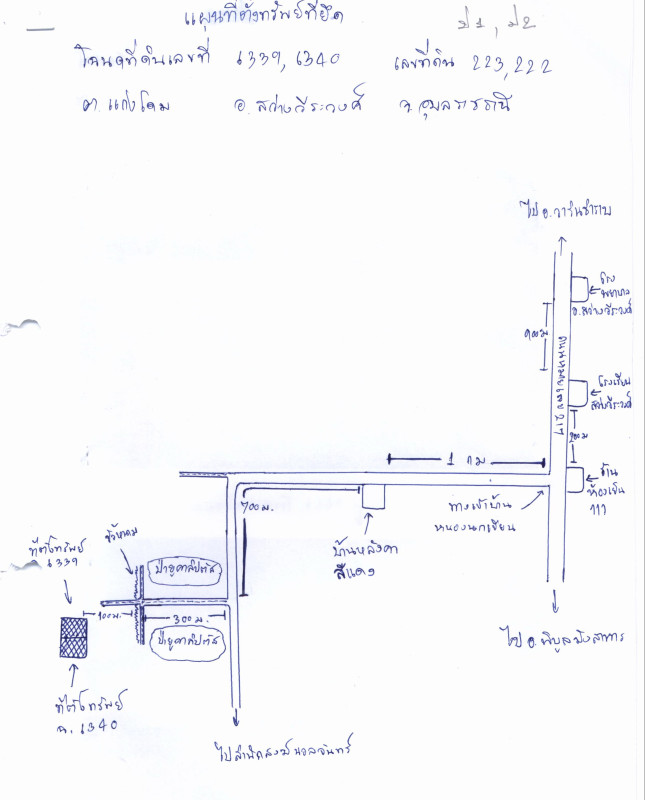 แผนที่ตั้งทรัพย์ที่ยึด
ป1, ป2
โฉนดที่ดินเลขที่ 6339, 6340 เลขที่ดิน 223, 222
ต.แก่งโดม อ.สว่างวีระวงศ์ จ.อุบลราชธานี
ไป อ.วารินชำราบ
โรง
พยาบาล
อ.สว่างวีระวงศ์
ถนน
โรงเรียน
สว่างวีระวงศ์
200 ม
1 กม
ร้าน
ห้องเย็น
111
ทางเข้าบ้าน
หนองนกเขียน
700 ม.
บ้านหลังคา
สีแดง
ที่ตั้งทรัพย์
6339
ป่ายูคาลิปตัส
100 ม.
300 ม.
ป่ายูคาลิปตัส
ที่ตั้งทรัพย์
ฉ. 6340
ไป อ.พิบูลมังสาหาร
ไปสำนักสงฆ์นวลจันทร์